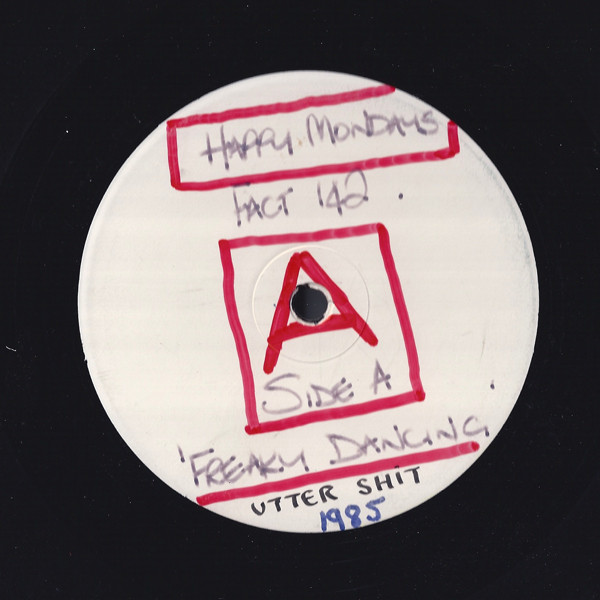 HAPPY MONDAYS
FACT 142.
A
SIDE A
'FREAKY DANCING'
UTTER SHIT
1985